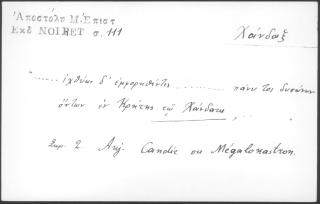 Ἀποστόλη Μ. Ἐπιστ
Ἐκδ NOIRET σ. 111
Χάνδαξ
"...... ἰχθύων δ' ἐμφορηθέντες ...... πάνυ τοι
ὄντων ἐν Κρήτης τῷ Χάνδακι, ...... "
2 Αὐγ. Candie ou Mégalokastron.